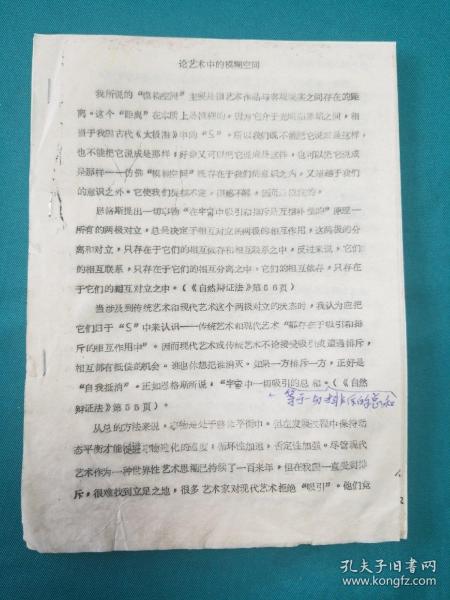 论艺术中的模糊空间
我所说的“模糊空间”主要是指艺术作品与客观现实之间存在的距
离。这个“距离”在本质上是模糊的，因为它介于光明和黑暗之间，相
当于我国古代《太极图》中的“S”。所以我们既不能把它说成是这样，
也不能把它说成是那样；好象又可以把它说成是这样，也可以把它说成
是那样——仿佛“模糊空间”既存在于我们的意识之内，又游离于我们
的意识之外。它使我们捉摸不定，困惑不解，因而
恩格斯提出一切事物“在宇宙中吸引和排斥是互相补偿的”原理—
所有的两极对立，总是决定于相互对立的两极的相互作用，这两极的分
离和对立，只存在于它们的相互依存和相互联系之中，反过来说，它们
的相互联系，只存在于它们的相互分离之中，它们的相互依存，只存在
于它们的相互对立之中。（《自然辩证法》第56页）
当涉及到传统艺术和现代艺术这个两极对立的状态时，我认为应把
它们归于“S”中来认识——传统艺术和现代艺术“都存在于吸引和排
斥的相互作用中”。因而现代艺术或传统艺术不论接受吸引或遭遇排斥，
相互都有抵值的机会。谁也休想把谁消灭。如果一方排斥一方，正好是
“自我抵消”。正如恩格斯所说，“宇宙中一切吸引的总和。（《自然
等于一切排斥的总和
辩证法》第55页）。
从总的方法来说，事物是处于整体平衡中。但在发展过程中保持动
态平衡才能促进事物进化的速度，循环性加速，否定性加强。尽管现代
艺术作为一种世界性艺术思潮已持续了一百来年，但在我国一直受到排
斥，很难找到立足之地，很多艺术家对现代艺术拒绝“吸引”。他们竟
孔夫子旧书网
www.kongfz.com